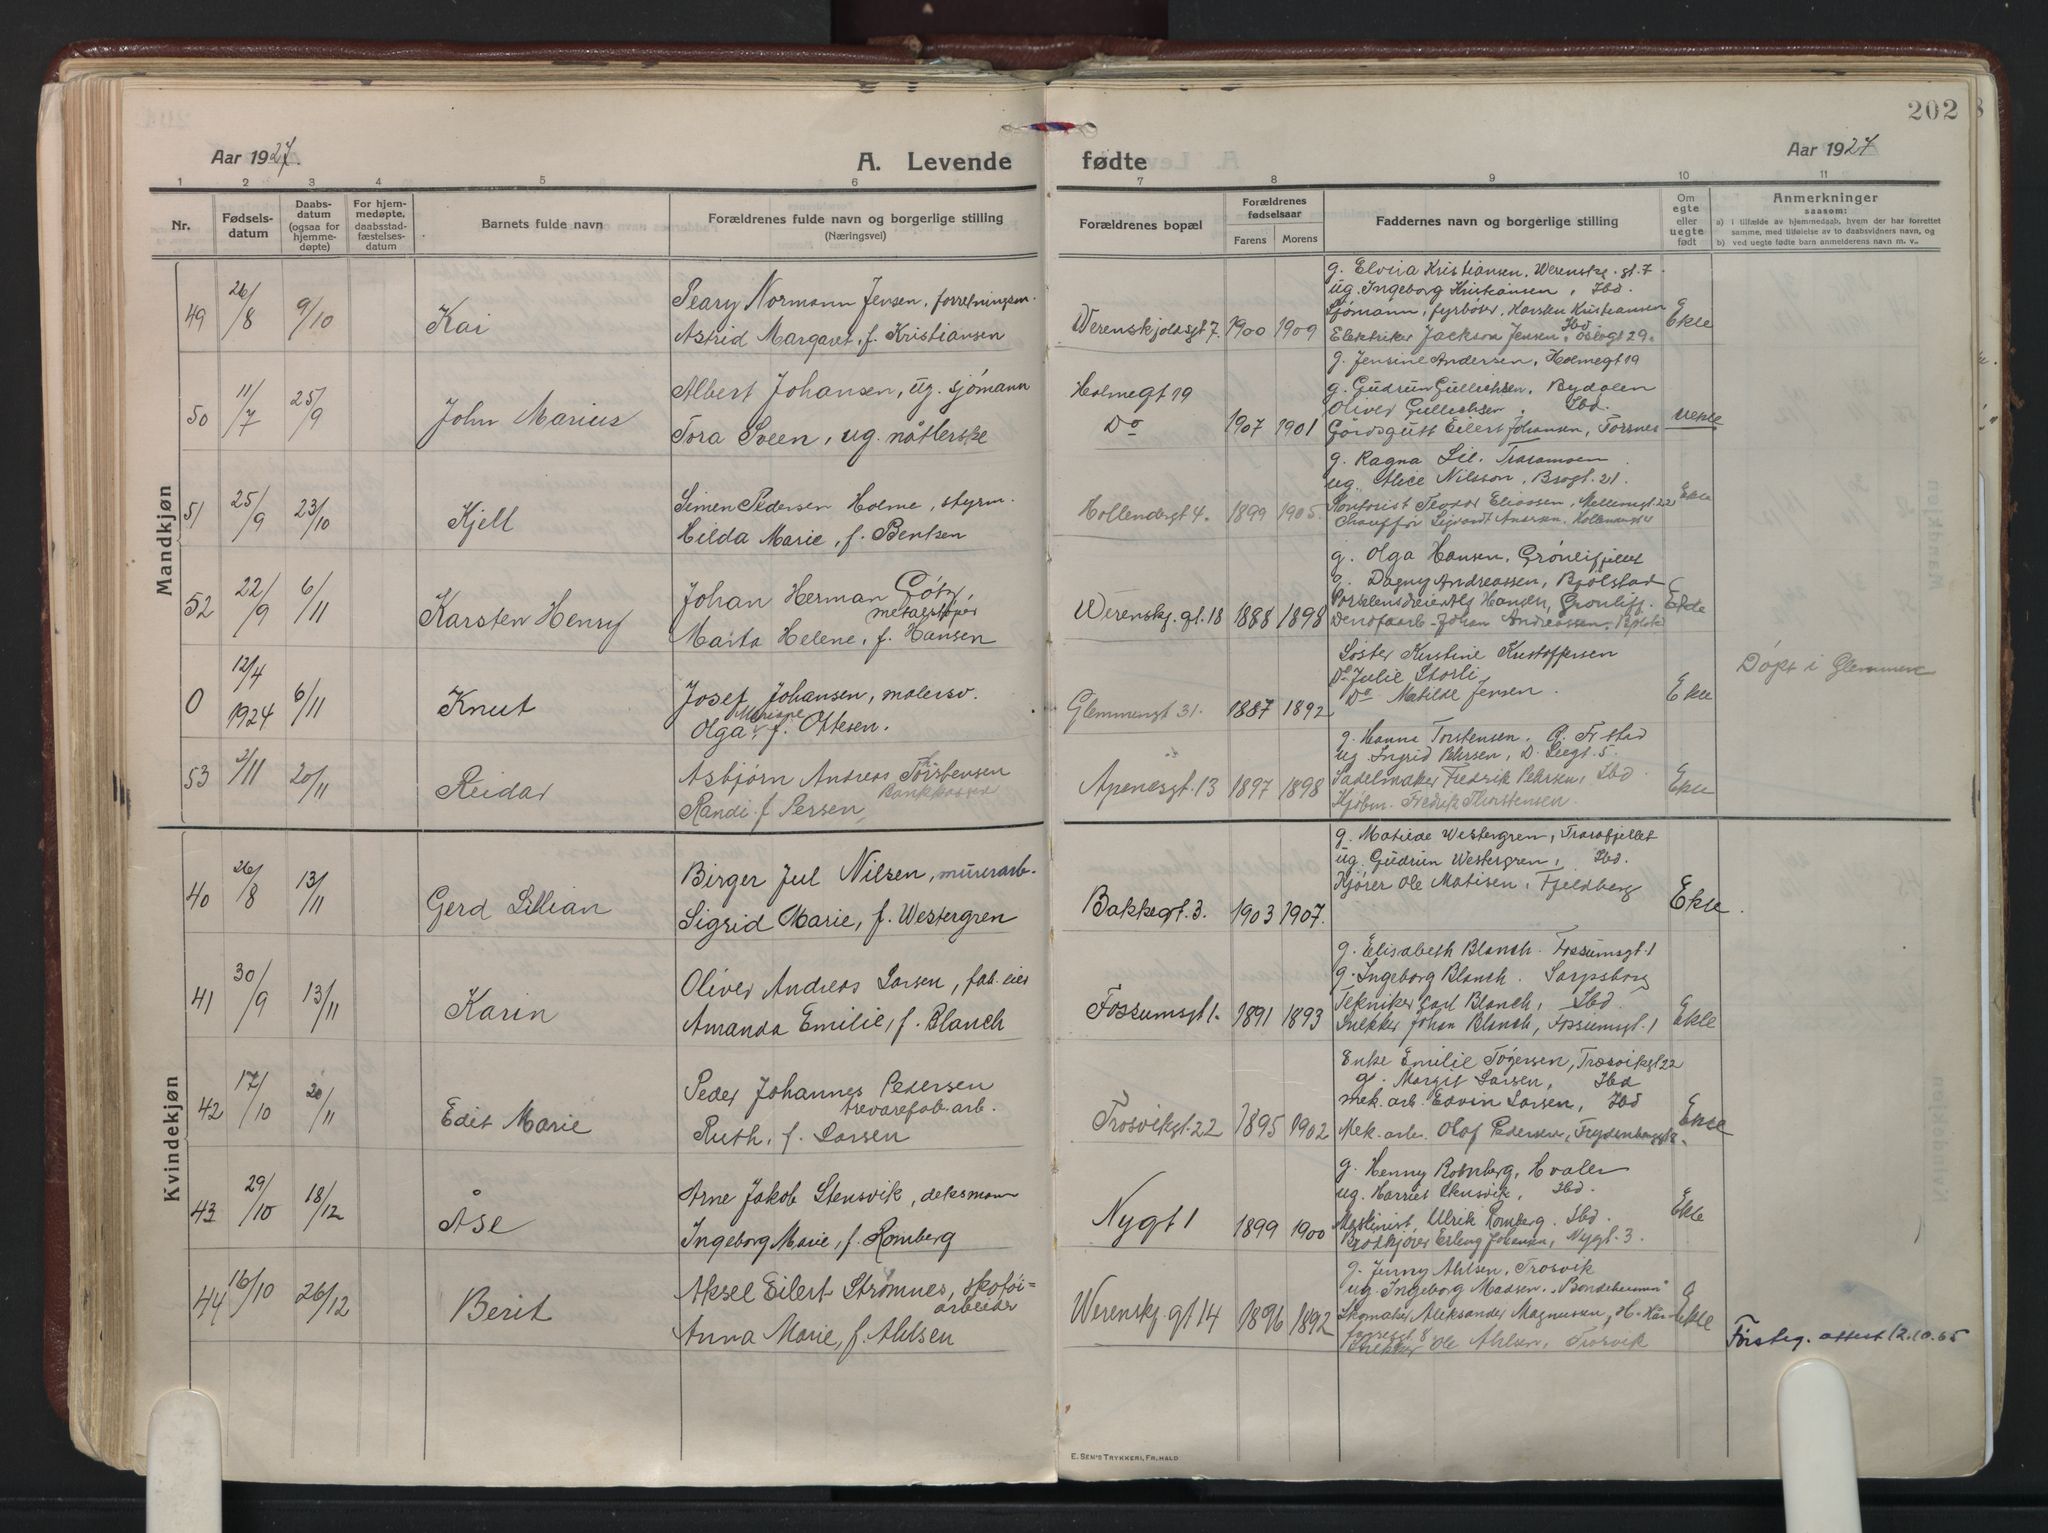 202
Aar 1927.
A. Levende
fødte
Aar 1927
1 2 3 4 5 6 7 8 9 10 11
Nr.
Fødsels-
datum
Daabs-
datum
(ogsaa for
hjemme-
døpte)
For hjem-
medøpte,
daabsstad-
fæstelses-
datum
Barnets fulde navn
Forældrenes fulde navn og borgerlige stilling
(Næringsvei)
Forældrenes bopæl
Forældrenes
fødselsaar
Farens Morens
Faddernes navn og borgerlige stilling
Om
egte
eller
uegte
født
Anmerkninger
saasom:
a) i tilfælde av hjemmedaab, hvem der har forrettet
samme, med tilføielse av to daabsvidners navn, og
b) ved uegte fødte barn anmelderens navn m. v.
Mandkjøn
49 26/8 9/10 Kai
Peary Normann Jensen, forretningsm.
Astrid Margaret, f. Kristiansen
Werenskjoldsgt 7. 1900 1909
g. Elvira Kristiansen, Werenskj. gt. 7
ug. Ingeborg Kristiansen, Ibd.
Sjømann, fyrbøter, Karsten Kristiansen
Ibd
Elektriker Jackson Jensen, Oslogt 29.
Ekte
50 11/7 25/9 John Marius
Albert Johansen, ug. sjømann
Tora Sveen, ug.
Holmegt 19
Do 1907 1901
g. Jensine Andersen, Holmegt 19
g. Gudrun Gullichsen, Bydalen
Oliver Gullichsen, Ibd.
Gårdsgutt Eilert Johansen, Torsnes
uekte
51 25/9 23/10 Kjell
Simen Pedersen Holme, styrm.
Hilda Marie, f. Bentsen
Hollendergt 4. 1899 1905.
g. Ragna Lil. Traramsen
ug. Alice Nilsson, Brogt. 21.
Kontorist Teodor Eliassen, Mellemgt. 22
Chauffør Sigvardt
Ekte
52 22/9 6/11 Karsten Henry
Johan Herman Götz,
metalstøper
Marta Helene, f. Hansen
Werenskj. gt. 18 1888 1898
g. Olga Hansen, Grønlifjellet
g. Dagny Andreassen, Bjølstad
Hansen, Grønlifj.
Johan Andreassen,
Ekte
0 12/4 1924 6/11 Knut
Josef Johansen, malersv.
Mariane
Olga, f. Ottesen.
Glemmengt 31. 1887 1892
Søster Kirstine Kristoffersen
Do Julie Storli
Do Matilde Jensen.
Ekte
Døpt i Glemmen
53 3/11 20/11 Reidar
Asbjørn Andreas Thorstensen
Bankkasser
Randi f. Persen
Apenesgt. 13 1897 1898
g. Hanna Torstensen. Fr.stad
ug. Ingrid Persen, D. Liegt. 5.
Sadelmaker Fredrik Persen, Ibd.
Kjøbm. Fredrik Thorstensen.
Ekte
Kvindekjøn
40 26/8 13/11 Gerd Lillian
Birger Jul Nilsen, murerarb.
Sigrid Marie, f. Westergren
Bakkegt. 3. 1903 1907.
g. Matilde Westergren, Trarafjellet
ug. Gudrun Westergren, Ibd.
Kjører Ole Matisen, Fjeldberg
Ekte.
41 30/9 13/11 Karin
Oliver Andreas Larsen, fab. eier
Amanda Emilie, f. Blanch
Fossumsgt 1. 1891 1893
g. Elisabeth Blanch. Fossumsgt. 1
g. Ingeborg Blanch. Sarpsborg
Tekniker Carl Blanch, Ibd.
Snekker Johan Blanch, Fossumsgt. 1
Ekte
42 17/10 20/11 Edit Marie
Peder Johannes Pedersen
trevarefab. arb.
Ruth, f. Larsen
Trosvikgt. 22 1895 1902
Enke Emilie Tøgersen, Trosvikgt 22
g. Margit Larsen, Ibd
mek. arb. Edvin Larsen, Ibd
Mek. arb. Olaf Pedersen, Frydenbergsgt 8.
Ekte
43 29/10 18/12 Åse
Arne Jakob Stensvik, deksmann
Ingeborg Marie, f. Romberg
Nygt 1 1899 1900
g. Henny Romberg, Hvaler
ug. Harriet Stensvik, Ibd.
Maskinist Ulrik Romberg. Ibd.
Brødkjører Erling Johansen, Nygt. 3.
Ekte
44 16/10 26/12 Berit
Aksel Eilert Strømnes, skotøi=
arbeider
Anna Marie, f. Ahlsen
Werenskj. gt 14 1896 1892
g. Jenny Ahlsen, Trosvik
ug. Ingeborg Madsen, "Bondeheimen"
Skomaker Aleksander Magnussen,
Snekker Ole Ahlsen, Trosvik
Ekte
Førsteg. attest 12.10.65
E. SEM'S TRYKKERI, FR.HALD